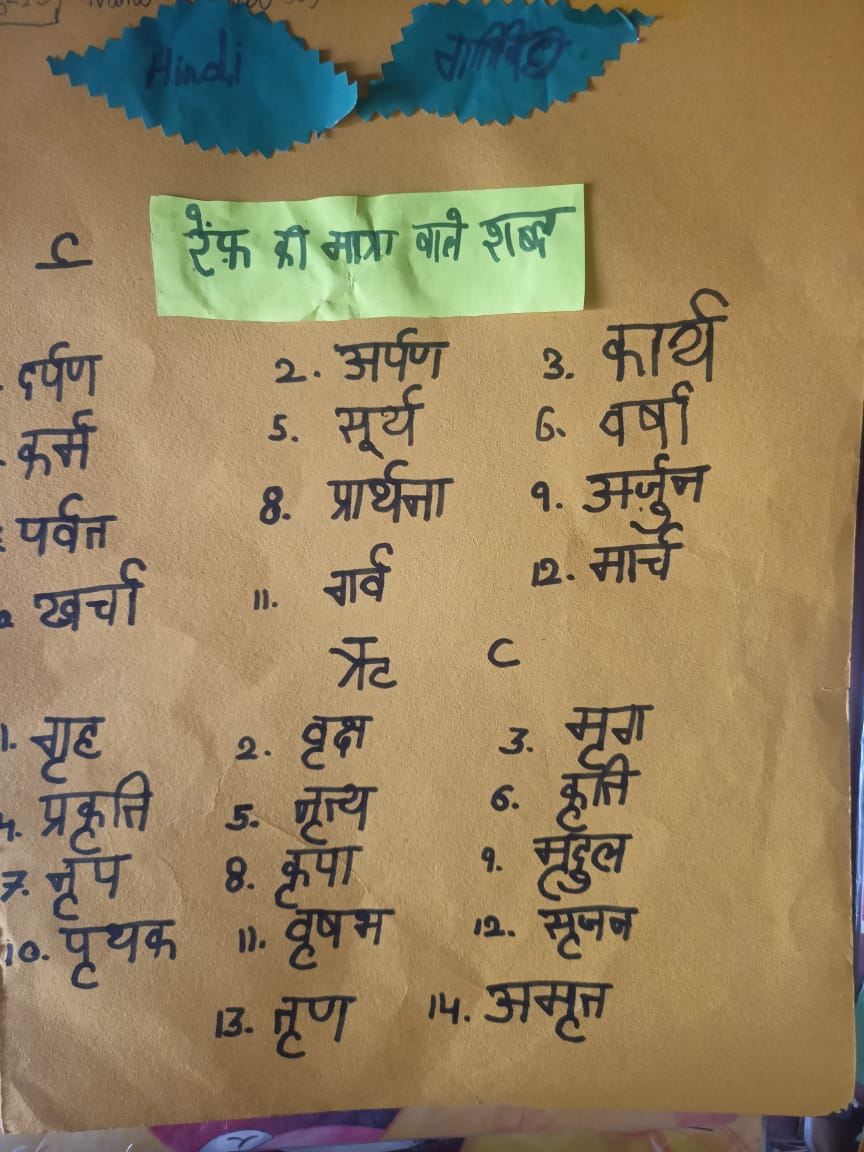 Hindi गतिविधि
रेंफ़ की मात्रा वाले शब्द
दर्पण 2. अर्पण 3. कार्य
कर्म 5. सूर्य 6. वर्षा
पर्वत 8. प्रार्थना 9. अर्जुन
खर्चा 11. गर्व 12. मार्च
ऋ ृ
1. गृह 2. वृक्ष 3. मृग
4. प्रकृति 5. नृत्य 6. कृति
7. नृप 8. कृपा 9. मृदुल
10. पृथक 11. वृषभ 12. सृजन
13. तृण 14. अमृत